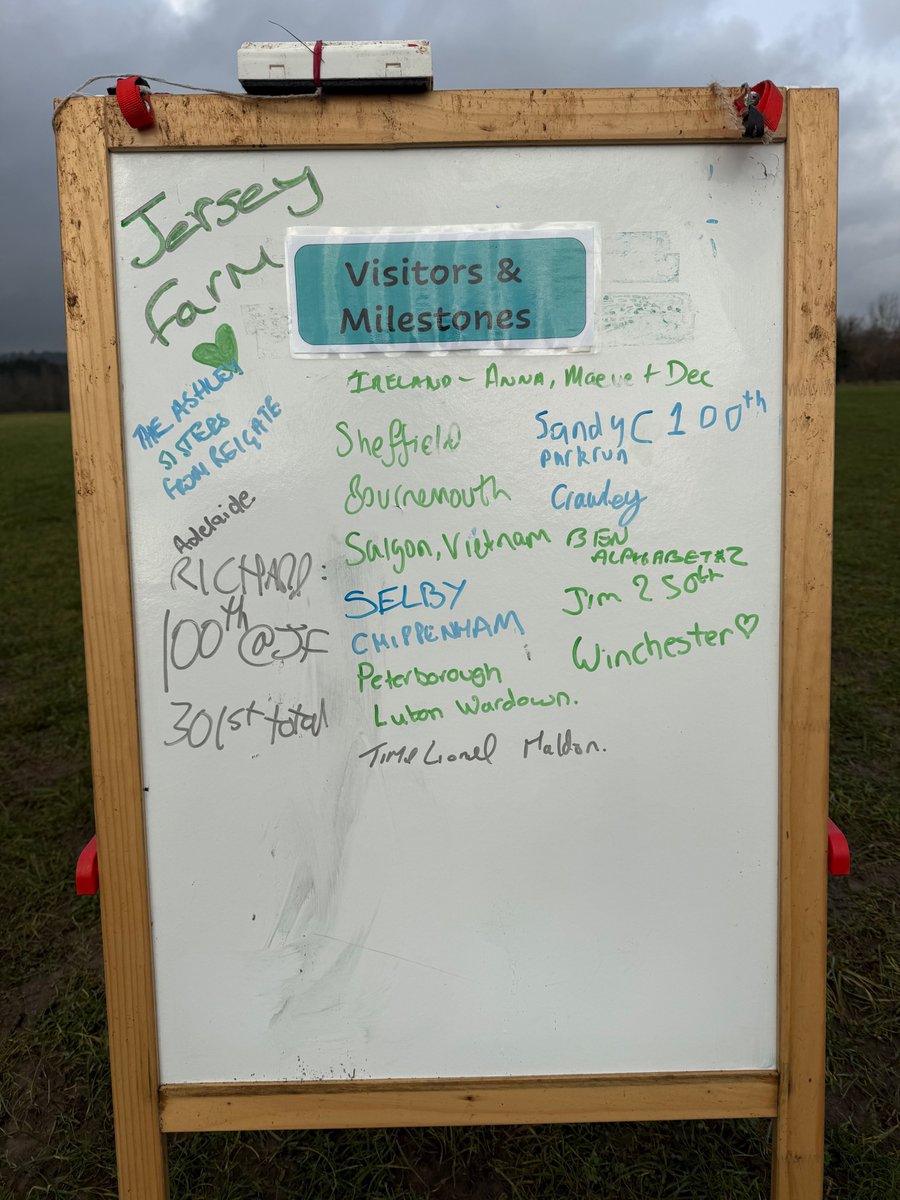 Jersey
Farm
Visitors &
Milestones
THE ASHLEY
SISTERS
FROM REIGATE
Adelaide
RICHARD:
100th @JF
301st total
IRELAND - ANNA, Maeve + Dec
Sheffield
Bournemouth
Saigon, Vietnam
SELBY
CHIPPENHAM
Peterborough
Luton Wardown.
Lionel Maldon.
Sandy C 100th
parkrun
Crawley
BEN
ALPHABET #2
Jim 250th
Winchester ♡